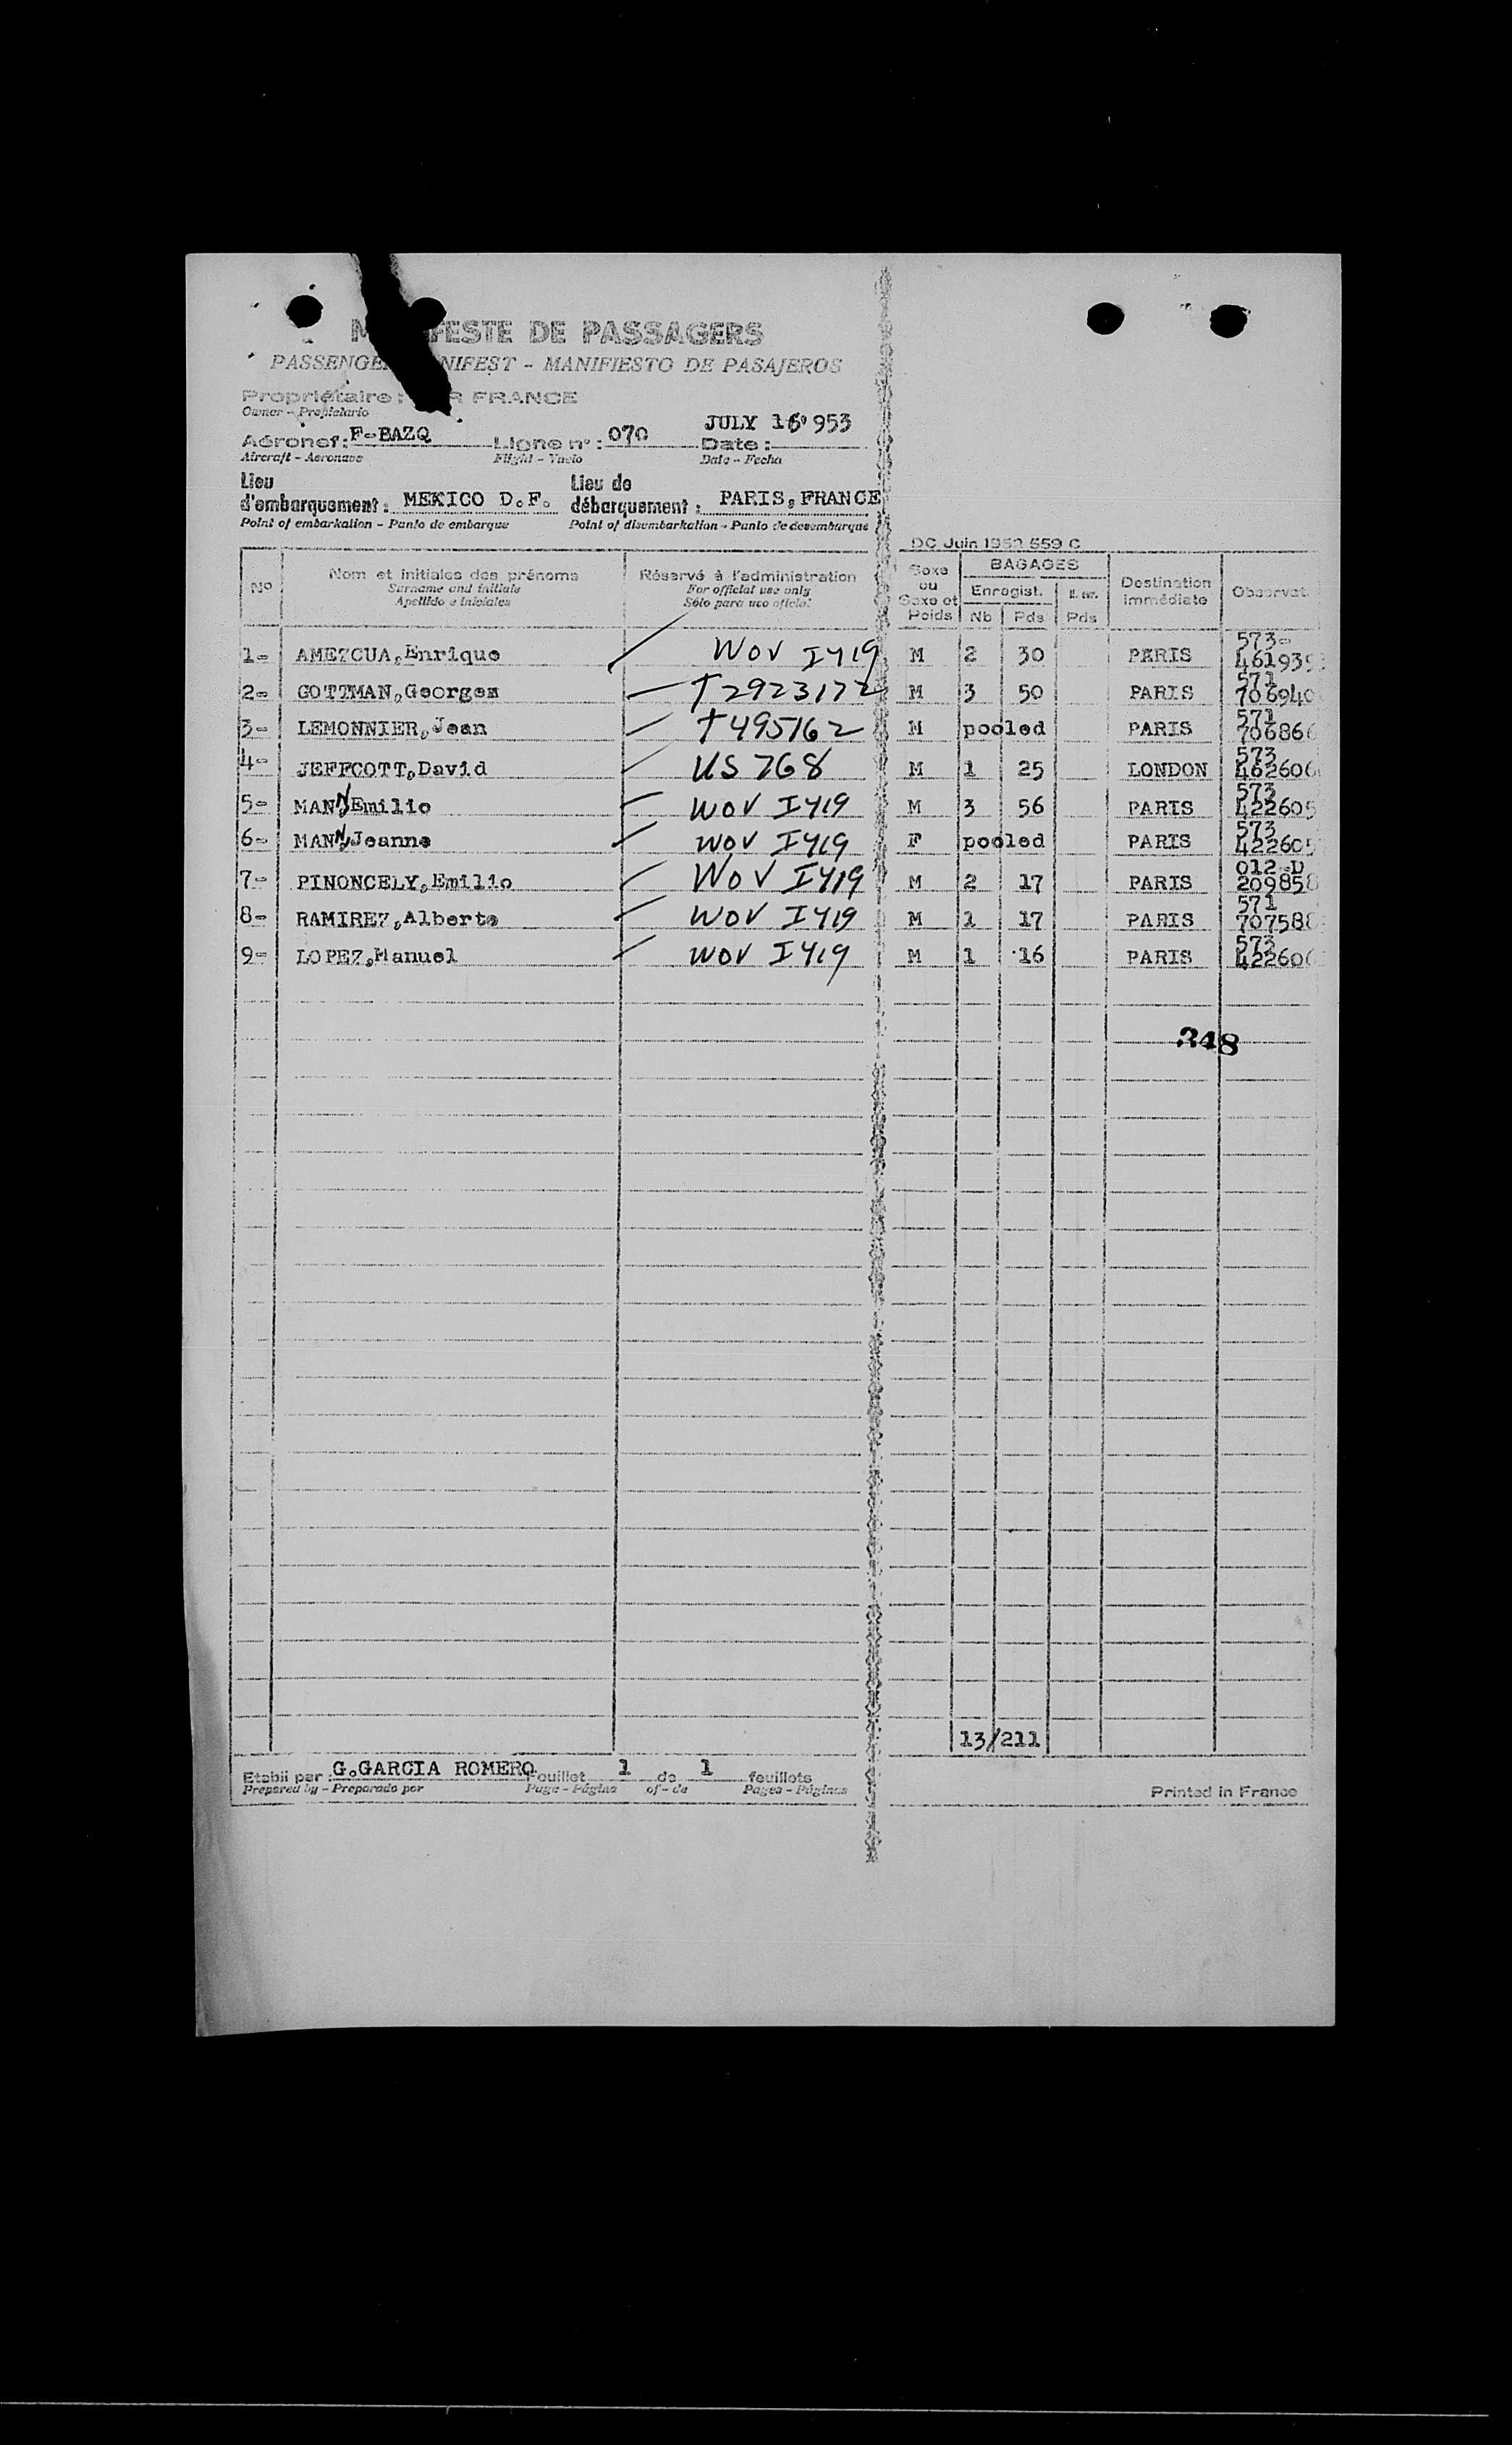 M FESTE DE PASSAGERS
PASSENGE NIFEST - MANIFIESTO DE PASAJEROS
Propriétaire : R FRANCE
Owner - Propietario
JULY 953
Aéronef : F-BAZQ Ligne n° : 070 Date :
Aircraft - Aeronave Flight - Vuelo Date - Fecha
Lieu d'embarquement : MEXICO D.F. Lieu de débarquement : PARIS, FRANCE
Point of embarkation - Punto de embarque Point of disembarkation - Punto de desembarque
DC Juin 559 C
N° Nom et initiales des prénoms Réservé à l'administration Sexe ou Sexe et Poids BAGAGES Destination immédiate Observat.
Surname and initials For official use only Enregist.
Apellido e iniciales Sólo para uso oficial Nb Pds Pds
1- AMEZCUA, Enrique WOV I419 M 2 30 PARIS 573- 46193
2- GOTTMAN, Georges T2923172 M 3 50 PARIS 571 706940
3- LEMONNIER, Jean T495162 M pooled PARIS 571 70686
4- JEFFCOTT, David US 768 M 1 25 LONDON 573 462606
5- MANN Emilio WOV I419 M 3 56 PARIS 573 422605
6- MANN Jeanne WOV I419 F pooled PARIS 573 422605
7- PINONCELY, Emilio WOV I419 M 2 17 PARIS 012-D 209858
8- RAMIREZ, Alberto WOV I419 M 1 17 PARIS 571 707588
9- LOPEZ, Manuel WOV I419 M 1 16 PARIS 573 42260
348
13/211
Etabli par : G.GARCIA ROMERO Feuillet 1 de 1 feuillets
Prepared by - Preparado por Page - Página of - de Pages - Páginas
Printed in France